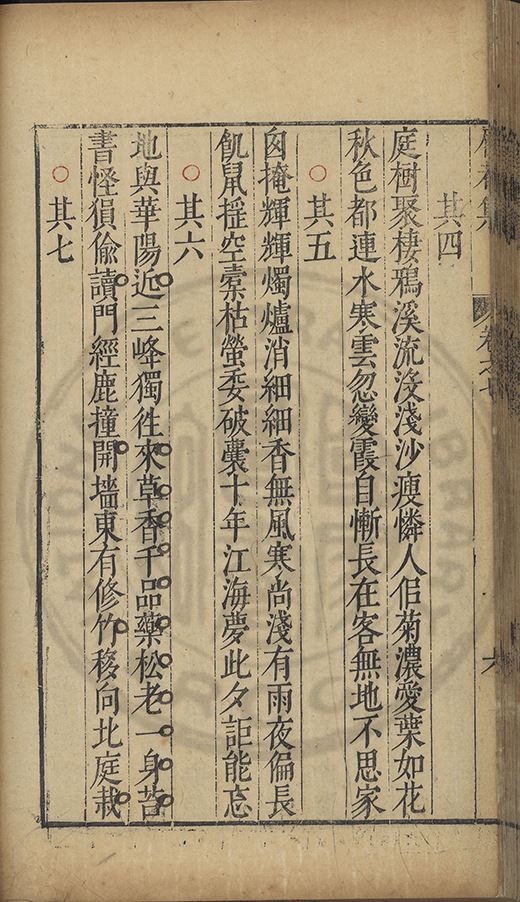 集 卷之七
其四
庭樹聚棲鴉溪流沒淺沙瘦憐人佀菊濃愛葉如花
秋色都連水寒雲忽變霞自慚長在客無地不思家
○其五
囪掩輝輝燭爐消細細香無風寒尚淺有雨夜偏長
飢鼠搖空橐枯螢委破囊十年江海夢此夕詎能忘
○其六
地與華陽近三峰獨徃來草香千品藥松老一身苔
書怪猨偷讀門經鹿撞開墻東有修竹移向北庭栽
○其七